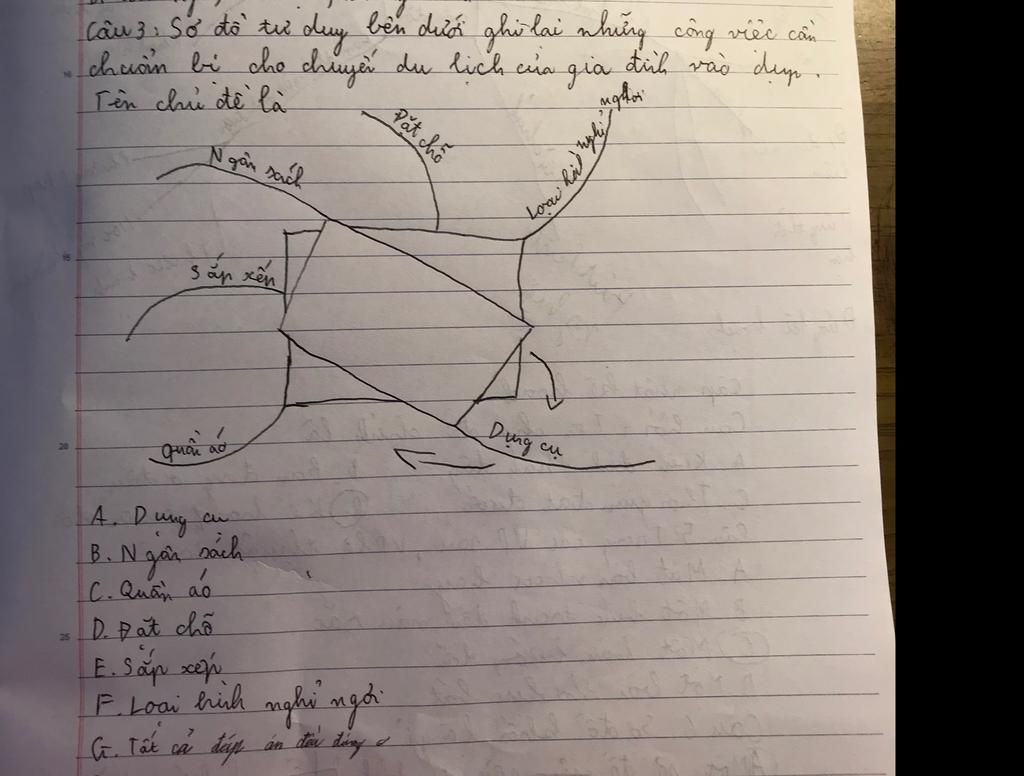 Câu 3: Sơ đồ tư duy bên dưới ghi lại những công việc cần
chuẩn bị cho chuyến du lịch của gia đình vào dịp.
Tên chủ đề là
Đặt chỗ
Loại hình nghỉ ngơi
Ngân sách
Sắp xếp
Quần áo
Dụng cụ
A. Dụng cụ
B. Ngân sách
C. Quần áo
D. Đặt chỗ
E. Sắp xếp
F. Loại hình nghỉ ngơi
G. Tất cả đáp án đều đúng
10
15
20
25